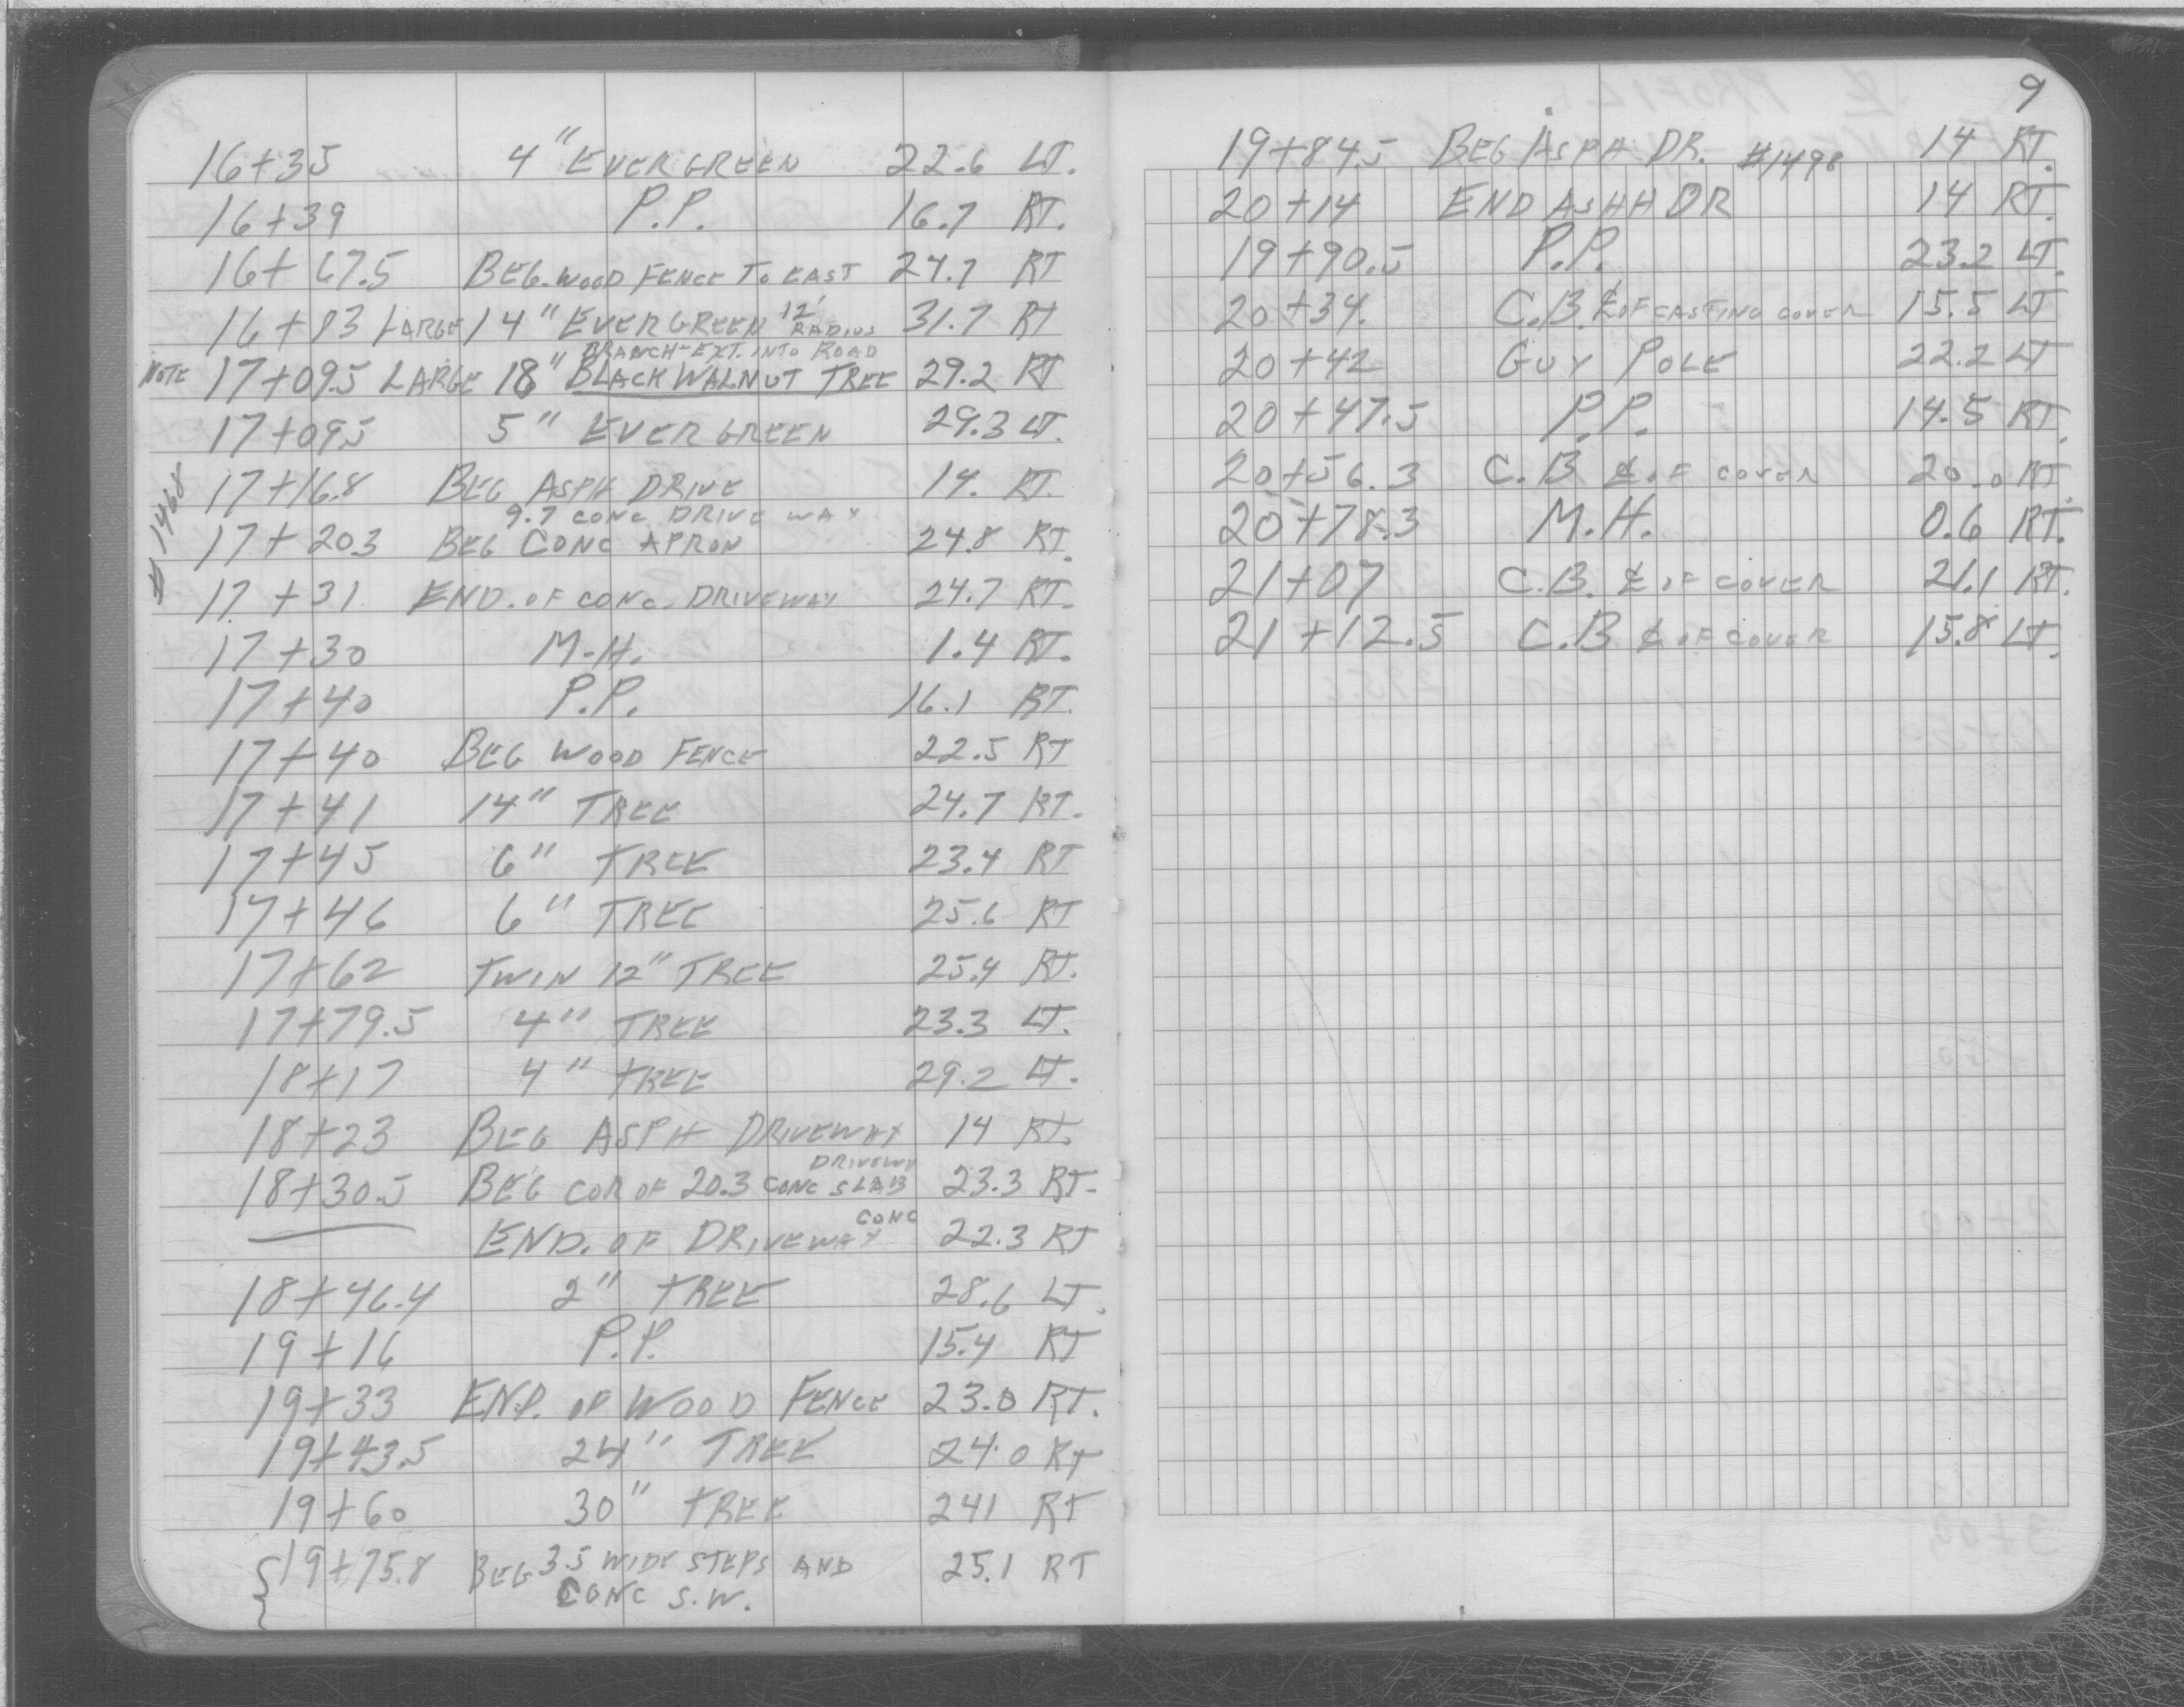 16+35 4" EVERGREEN 22.6 LT.
16+39 P.P. 16.7 RT.
16+67.5 BEG. WOOD FENCE TO EAST 24.7 RT
16+83 LARGE 14" EVERGREEN 12' RADIUS 31.7 RT
BRANCH-EXT. INTO ROAD
NOTE 17+09.5 LARGE 18" BLACK WALNUT TREE 29.2 RT
17+09.5 5" EVERGREEN 29.3 LT.
# 1468
17+16.8 BEG ASPH DRIVE 14. RT.
9.7 CONC DRIVE WAY
17+20.3 BEG CONC APRON 24.8 RT.
17+31 END. OF CONC. DRIVEWAY 24.7 RT.
17+30 M.H. 1.4 RT.
17+40 P.P. 16.1 RT.
17+40 BEG WOOD FENCE 22.5 RT
17+41 14" TREE 24.7 RT.
17+45 6" TREE 23.4 RT
17+46 6" TREE 25.6 RT
17+62 TWIN 12" TREE 25.4 RT.
17+79.5 4" TREE 23.3 LT.
18+17 4" TREE 29.2 LT.
18+23 BEG ASPH DRIVEWAY 14 RT.
DRIVEWY
18+30.5 BEG COR OF 20.3 CONC SLAB 23.3 RT.
CONC
END. OF DRIVEWAY 22.3 RT
18+46.4 2" TREE 28.6 LT.
19+16 P.P. 15.4 RT
19+33 END. OF WOOD FENCE 23.0 RT.
19+43.5 24" TREE 24.0 RT
19+60 30" TREE 241 RT
{19+75.8 BEG 3.5 WIDE STEPS AND 25.1 RT
CONC S.W.
9
19+84.5 BEG ASPH DR. #1498 14 RT.
20+14 END ASHH DR 14 RT.
19+90.5 P.P. 23.2 LT.
20+34. C.B. ℄ OF CASTING COVER 15.5 LT
20+42 GUY POLE 22.2 LT
20+47.5 P.P. 14.5 RT.
20+56.3 C.B ℄ OF COVER 20.0 RT.
20+78.3 M.H. 0.6 RT.
21+07 C.B. ℄ OF COVER 21.1 RT.
21+12.5 C.B ℄ OF COVER 15.8 LT.